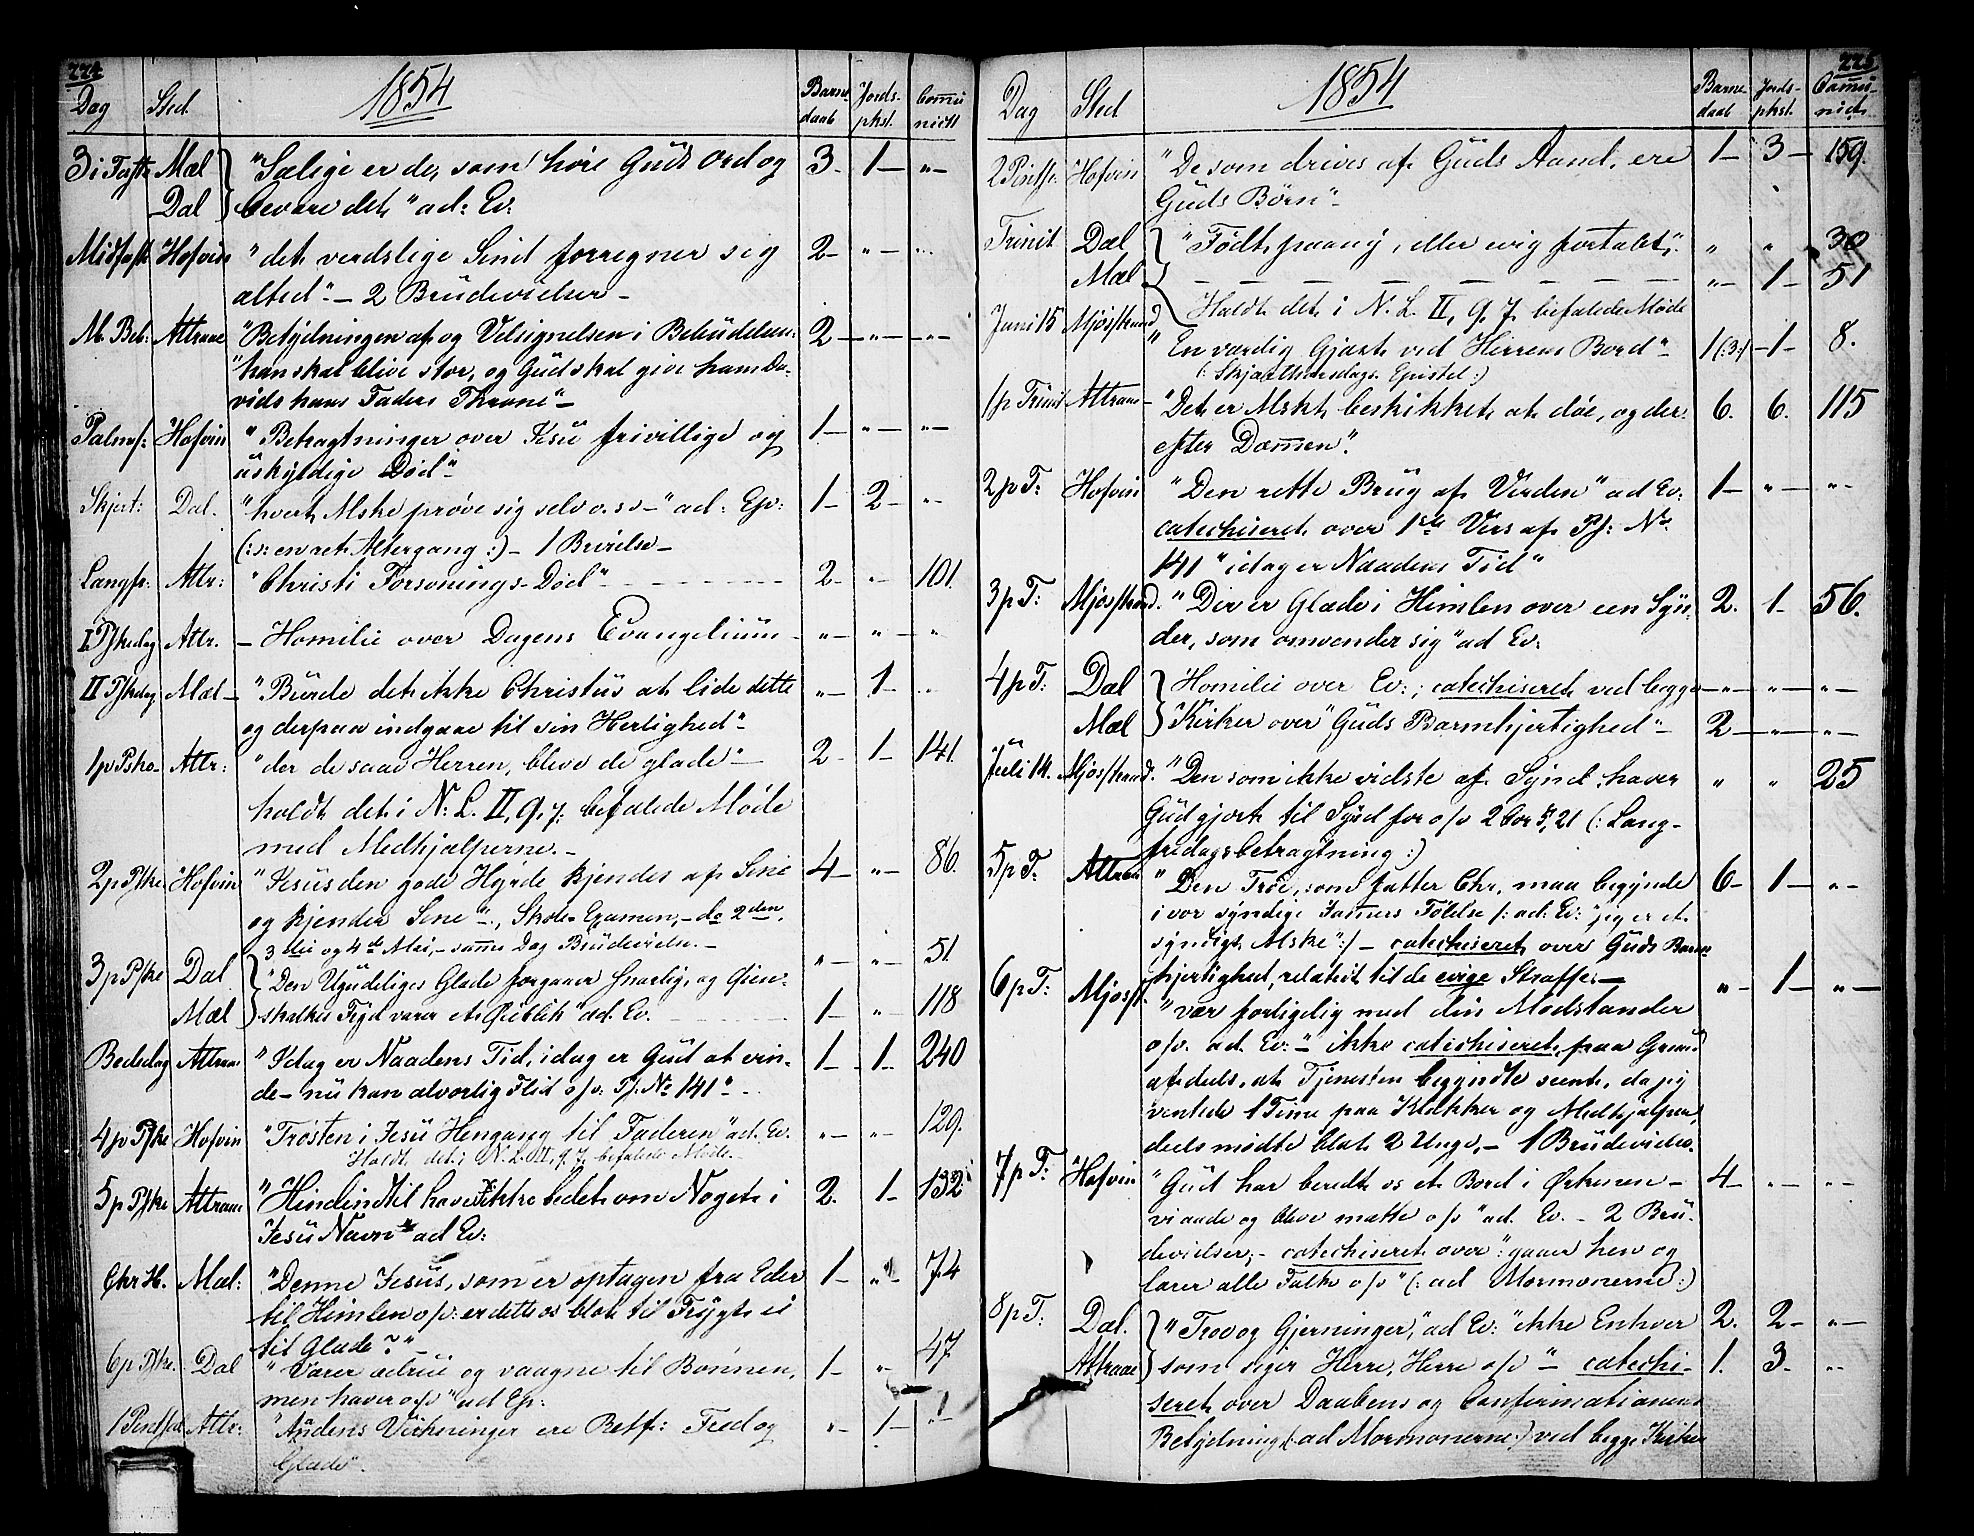 224
1854
Dag Sted Barne daab Jords pkst. Comu nictt
3 i Faste Mæl "Salige er de, som høre Guds Ord og 3- 1- "-
Dal bevare det" ad: Ev:
Midfaste Hofvin "det verdslige Sind forregner sig 2- "- "-
altid" - 2 Brudevielser -
M. Beb: Attraae "Betydningen af og Velsignelsen i Bebudelsen: 2- "- "-
"han skal blive stor, og Gud skal give ham Da-
vids hans Faders Throne"-
Palmes: Hofvin "Betragtninger over Jesu frivillige og 1- "- "-
uskyldige Død"
Skjert: Dal. "hvert Mske prøve sig selv o.s.v-" ad: Ep: 1- 2- "-
(:s: en ret Altergang:)- 1 Brvielse-
Langfr. Attr: "Christi Forsonings-Død" 2- "- 101.
I Pskedag Attr. - Homilie over Dagens Evangelium - "- "- "
II Pskdag Mæl- "Burde det ikke Christus at lide dette "- 1- "-
og derpaa indgaae til sin Herlighed"
1 p Pske- Attr: "der de saae Herren, bleve de glade"- 2- 1- 141.
holdt det i N: L. II, 9, 7. befalede Møde
med Medhjælperne.-
2 p Pske Hofvin "Jesus den gode Hyrde kjendes af Sine 4- "- 86.
og kjender Sine". Skole-Examen,- da 2den,
3die og 4de Mai,- samme Dag Brudevielse.-
3 p Pske Dal "Den Ugudeliges Glæde forgaaer snarlig, og Øien- "- "- 51.
Mæl skalkes Fryd varer et Øieblik" ad. Ev. 1- " 118
Bededag Attraae "Idag er Naadens Tid, idag er Gud at vin- 1- 1- 240
de- nu kan alvorlig Flid o/v: Ps. No 141"
4 p Pske Hofvin "Trøsten i Jesu Hengang til Faderen" ad. Ev. "- "- 129.
Holdt det i N. L. II, 9, 7. befalede Møde-
5 p Pske Attraae "Hindindtil have I ikke bedet om Noget i 2. 1- 132
Jesu Navn" ad Ev:
Chr H. Mæl: "Denne Jesus, som er optagen fra Eder 1- "- 74
til Himlen o/v: er dette os blot til Frygt ei
til Glæde?"-
6 p Pske. Dal "Værer ædrue og vaagne til Bønnen, 1- "- 47
men haver o/v" ad Ep:
1 Pindsed. Attr: "Aandens Virkninger ere Retf: Fred og "- 1- "-
Glæde".
225
1854
Dag Sted Barne daab Jords- pkst. Comu- nict.
2 Pindse. Hofvin "De som drives af Guds Aand, ere 1- 3- 159.
Guds Børn"-
Trinit Dæl "Født paany, eller evig fortabt". " " 30
Mæl - - - - - - - "- 1- 51
Holdt det i N. L. II, 9, 7. befalede Møde
Juni 15 Mjøsstrand "En værdig Gjæst ved Herrens Bord" 1(:3:) -1- 8.
(: Skjærthorsdags Epistel:)
1 p Trinit Attraae- "Det er Mskt beskikket at døe, og der- 6. 6. 115
efter Dommen".
2 p T: Hofvin "Den rette Brug af Verden" ad Ev: 1- "- "-
catechiseret over 1ste Vers af Ps: No.
141 "idag er Naadens Tid"
3 p T: Mjøsstrand. "Der er Glæde i Himlen over een Syn- 2. 1- 56.
der, som omvender sig" ad Ev:
4 p T: Dæl Homilie over Ev:; catechiseret ved begge "- "- "-
Mæl Kirker over "Guds Barmhjertighed"- 2- "- "-
Juli 14. Mjøsstrand. "Den som ikke vidste af Synd, haver " " 25
Gud gjort til Synd for o/v 2 Cor 5, 21 (: Lang-
fredagsbetragtning:)
5 p T: Attraae "Den Troe, som fatter Chr, maa begynde 6- 1- "-
i vor syndige Jamers Følelse /: ad. Ev: "jeg er et
syndigt Mske":/- catechiseret over Guds Barm-
hjertighed, relativt til de evige Straffe.-
6 p T: Mjøsst. "vær forligelig med din Modstander "- 1- "-
o/v. ad. Ev:"- ikke catechiseret, paa Grund
af deels, at Tjenesten begyndte seent, da jeg
ventede 1 Time paa Klokker og Medhjælper,
deels mødte blot 2 Unge,- 1 Brudevielse.
7 p T: Hofvin "Gud har beredt os et Bord i Ørkenen- 4- "- "-
vi aade og bleve mætte o/v" ad. Ev.- 2 Bru-
devielser;- catechiseret over: "gaaer hen og
lærer alle Folk o/v" (: ad Mormonerne:)
8 p T: Dal. "Tro og Gjerninger", ad Ev: "ikke Enhver 2. 2- "-
Attraae som siger Herre, Herre o/v"- catechi- 1. 3. "-
seret over Daabens og Confirmationens
Betydning (: ad Mormonerne:) ved begge Kirker